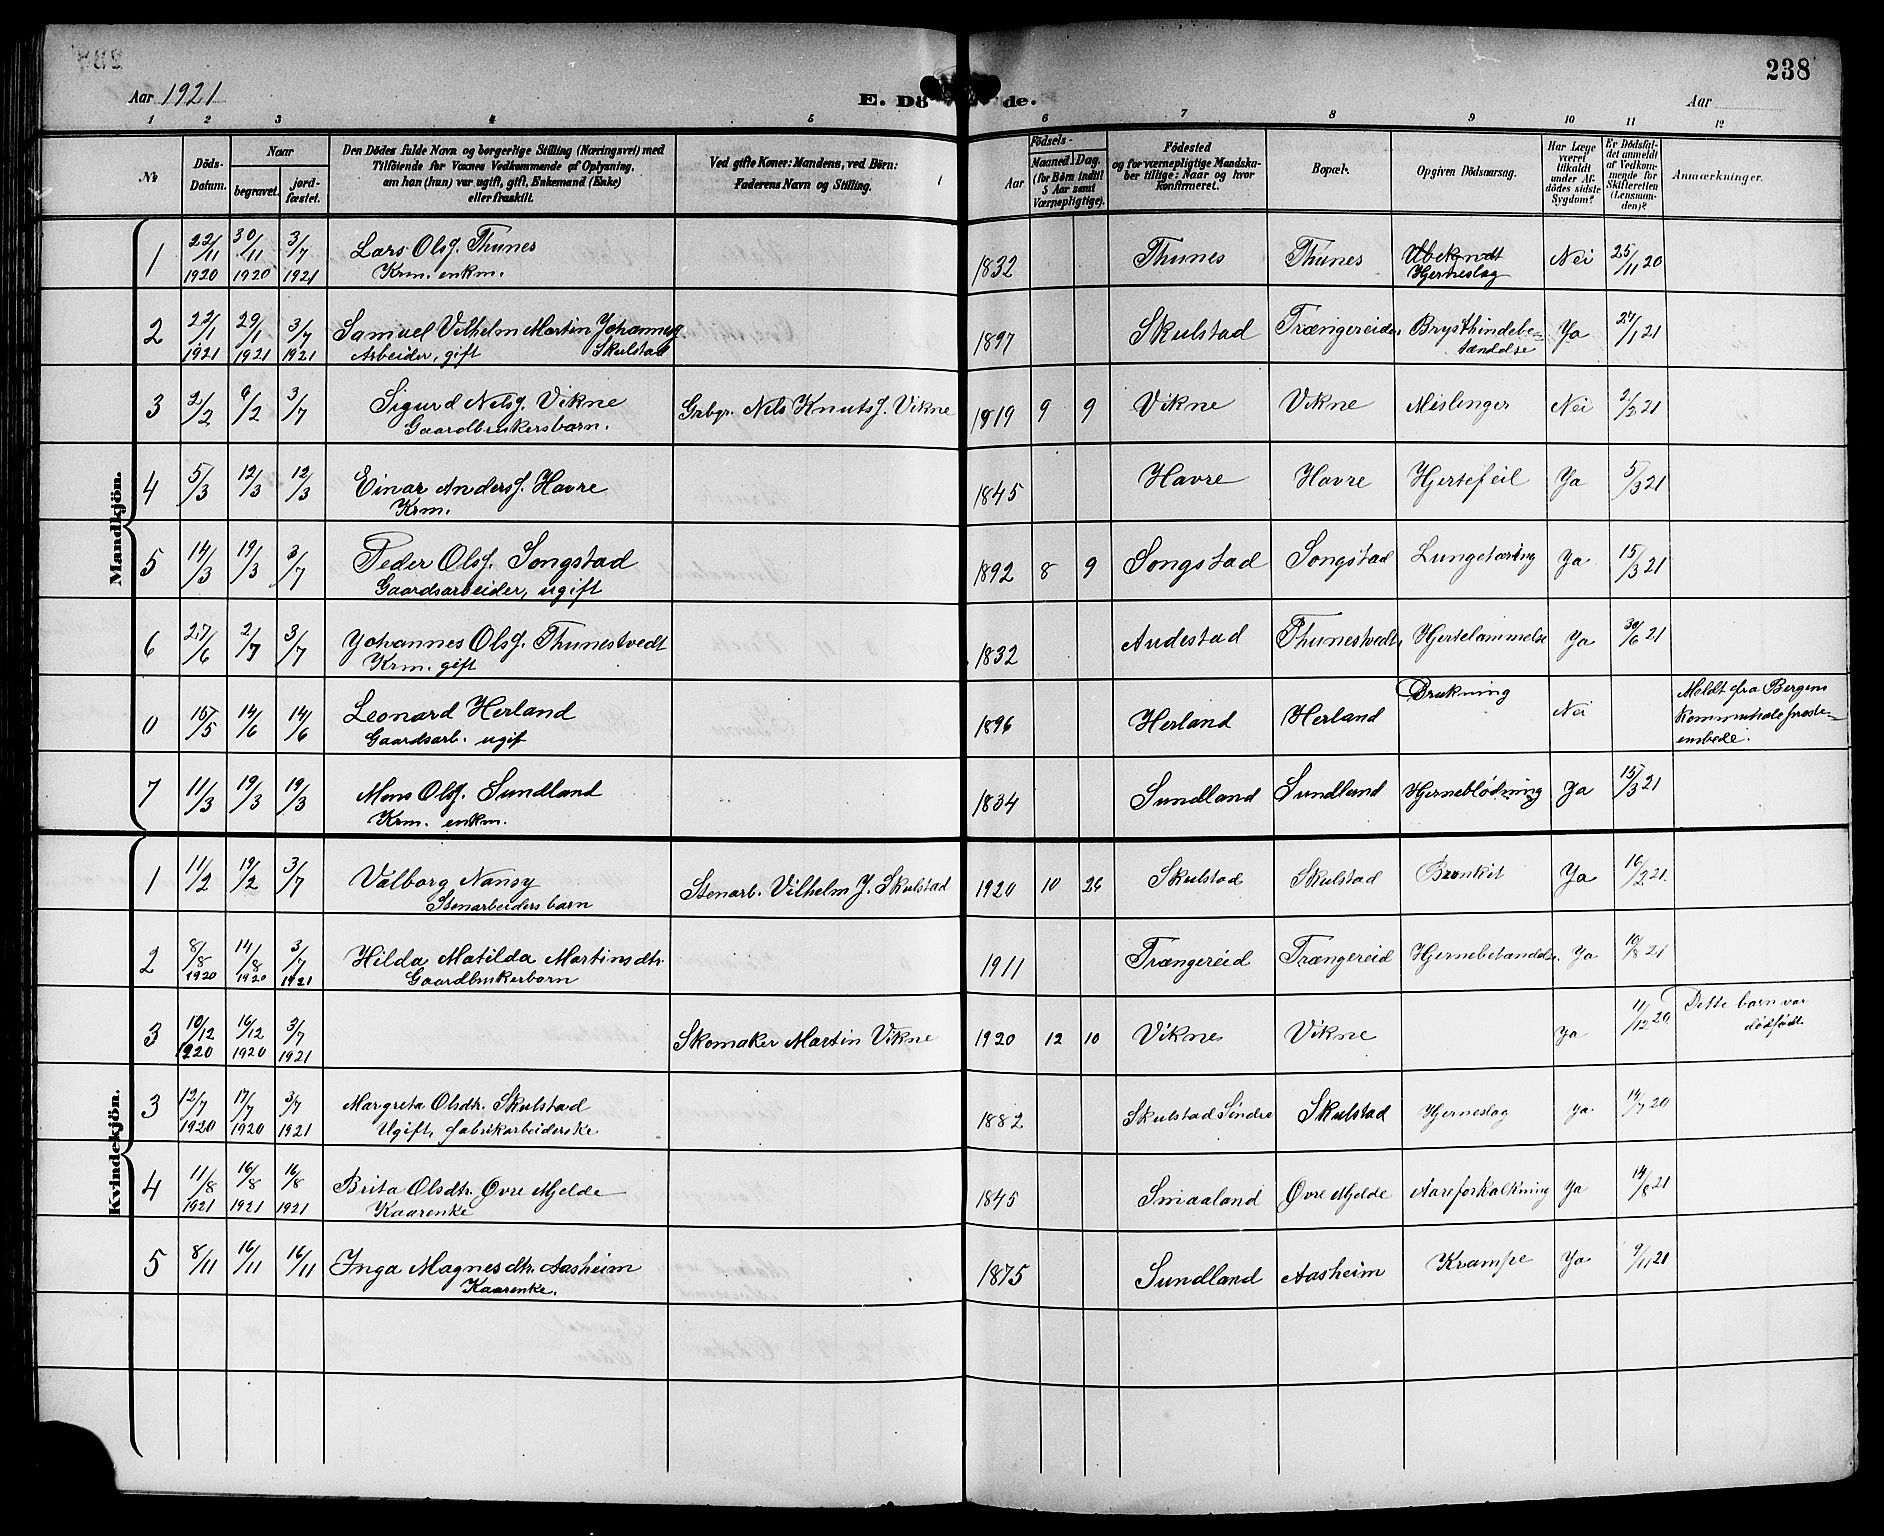 238
Aar 1921
E. Dö de.
Aar
1 2 3 4 5 6 7 8 9 10 11 12
No
Döds-Datum.
Naar
begravet.
jord-fæstet.
Den Dödes fulde Navn og borgerlige Stilling (Næringsvei) med
Tilföiende for Voxnes Vedkommende af Oplysning,
om han (hun) var ugift, gift, Enkemand (Enke)
eller fraskilt.
Ved gifte Koner: Mandens, ved Børn:
Faderens Navn og Stilling.
Födsels-
Aar
Maaned. Dag.
(for Börn indtil
5 Aar samt
Værnepligtige).
Födested
og for værnepligtige Mandska-
ber tillige: Naar og hvor
konfirmeret.
Bopæl.
Opgiven Dödsaarsag.
Har Læge
været
tilkaldt
under Af-
dödes sidste
Sygdom?
Er Dödsfal-
det anmeldt
af Vedkom-
mende for
Skifteretten
(Lensman-
den)?
Anmærkninger.
Mandkjön.
1 22/11 1920 30/11 1920 3/7 1921 Lars Olsf. Thunes 1832 Thunes Thunes Ubekendt Nei 25/11 20
Krm. enkm. Hjerneslag
2 22/1 1921 29/1 1921 3/7 1921 Samuel Vilhelm Martin Johannesf. 1897 Skulstad Trængereidet Brysthindebe- Ya 24/1 21
Arbeider, gift Skulstad tændelse
3 2/2 6/2 3/7 Sigurd Nelsf. Vikne Grbgr. Nils Knutsf. Vikne 1819 9 9 Vikne Vikne Mislinger Nei 2/2 21
Gaardbrukersbarn.
4 5/3 12/3 12/3 Einar Andersf. Havre 1845 Havre Havre Hjertefeil Ya 5/3 21
Krm.
5 14/3 19/3 3/7 Peder Olsf. Songstad 1892 8 9 Songstad Songstad Lungetæring Ya 15/3 21
Gaardsarbeider, ugift
6 27/6 2/7 3/7 Yohannes Olsf. Thunestvedt 1832 Audestad Thunestvedt Hjertelammelse Ya 30/6 21
Krm. gift
0 15/5 14/6 14/6 Leonard Herland 1896 Herland Herland Drukning Nei Meldt fra Bergens
Gaardsarb. ugift kommunale preste-
embede.
7 11/3 19/3 19/3 Mons Olsf. Sundland 1834 Sundland Sundland Hjerneblødning Ya 15/3 21
Krm. enkm.
Kvindekjön.
1 11/2 19/2 3/7 Valborg Nansy Stenarb. Vilhelm J. Skulstad 1920 10 26 Skulstad Skulstad Bronkit Ya 16/2 21
Stenarbeiders barn
2 8/8 1920 14/8 1920 3/7 1921 Hilda Matilda Martinsdtr. 1911 Trængereid Trængereid Hjernebetændelse Ya 10/8 21
Gaardbrukerbarn
3 10/12 1920 16/12 1920 3/7 1921 Skomaker Martin Vikne 1920 12 10 Vikne Vikne Ya 11/12 20 Dette barn var
dödfödt
3 12/7 1920 17/7 1920 3/7 1921 Margreta Olsdtr. Skulstad 1882 Skulstad Söndre Skulstad Hjerneslag Ya 14/7 20
Ugift, fabrikarbeiderske
4 11/8 1921 16/8 1921 16/8 1921 Brita Olsdtr. Øvre Mjelde 1845 Smaaland Øvre Mjelde Aareforkalkning Ya 14/8 21
Kaarenke
5 8/11 16/11 16/11 Inga Magnesdtr. Aasheim 1875 Sundland Aasheim Krampe Ya 9/11 21
Kaarenke.